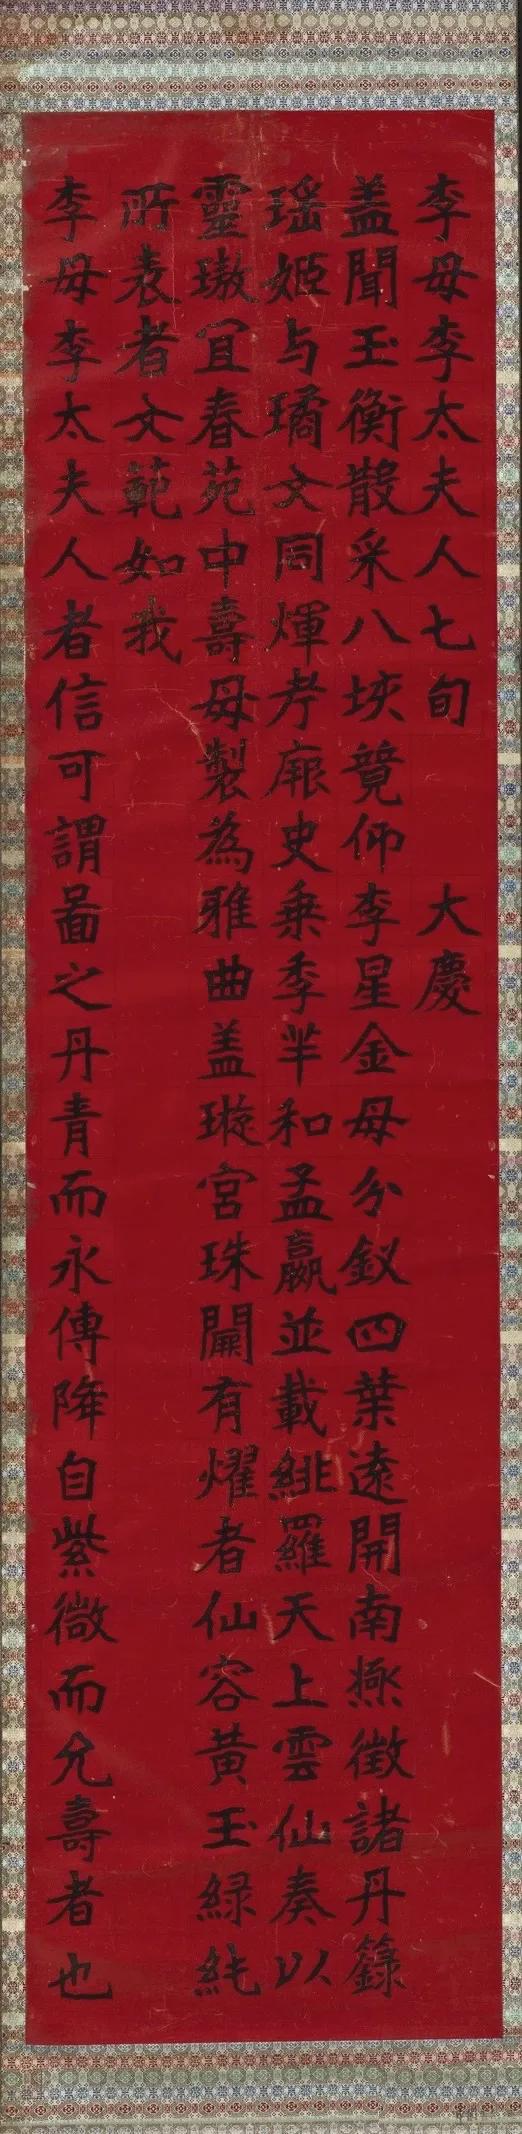 李母李太夫人七旬　大慶
盖聞玉衡散采八埏競仰李星金母分釵四葉遠開南極徴諸丹籙
瑶姬与璚文同煇考厥史乗季羋和孟嬴並載緋羅天上雲仙奏以
靈璈冝春苑中壽母製為雅曲盖璇宮珠闕有燿者仙容黃玉緑純
所表者文範如我
李母李太夫人者信可謂啚之丹青而永傳降自紫微而允壽者也